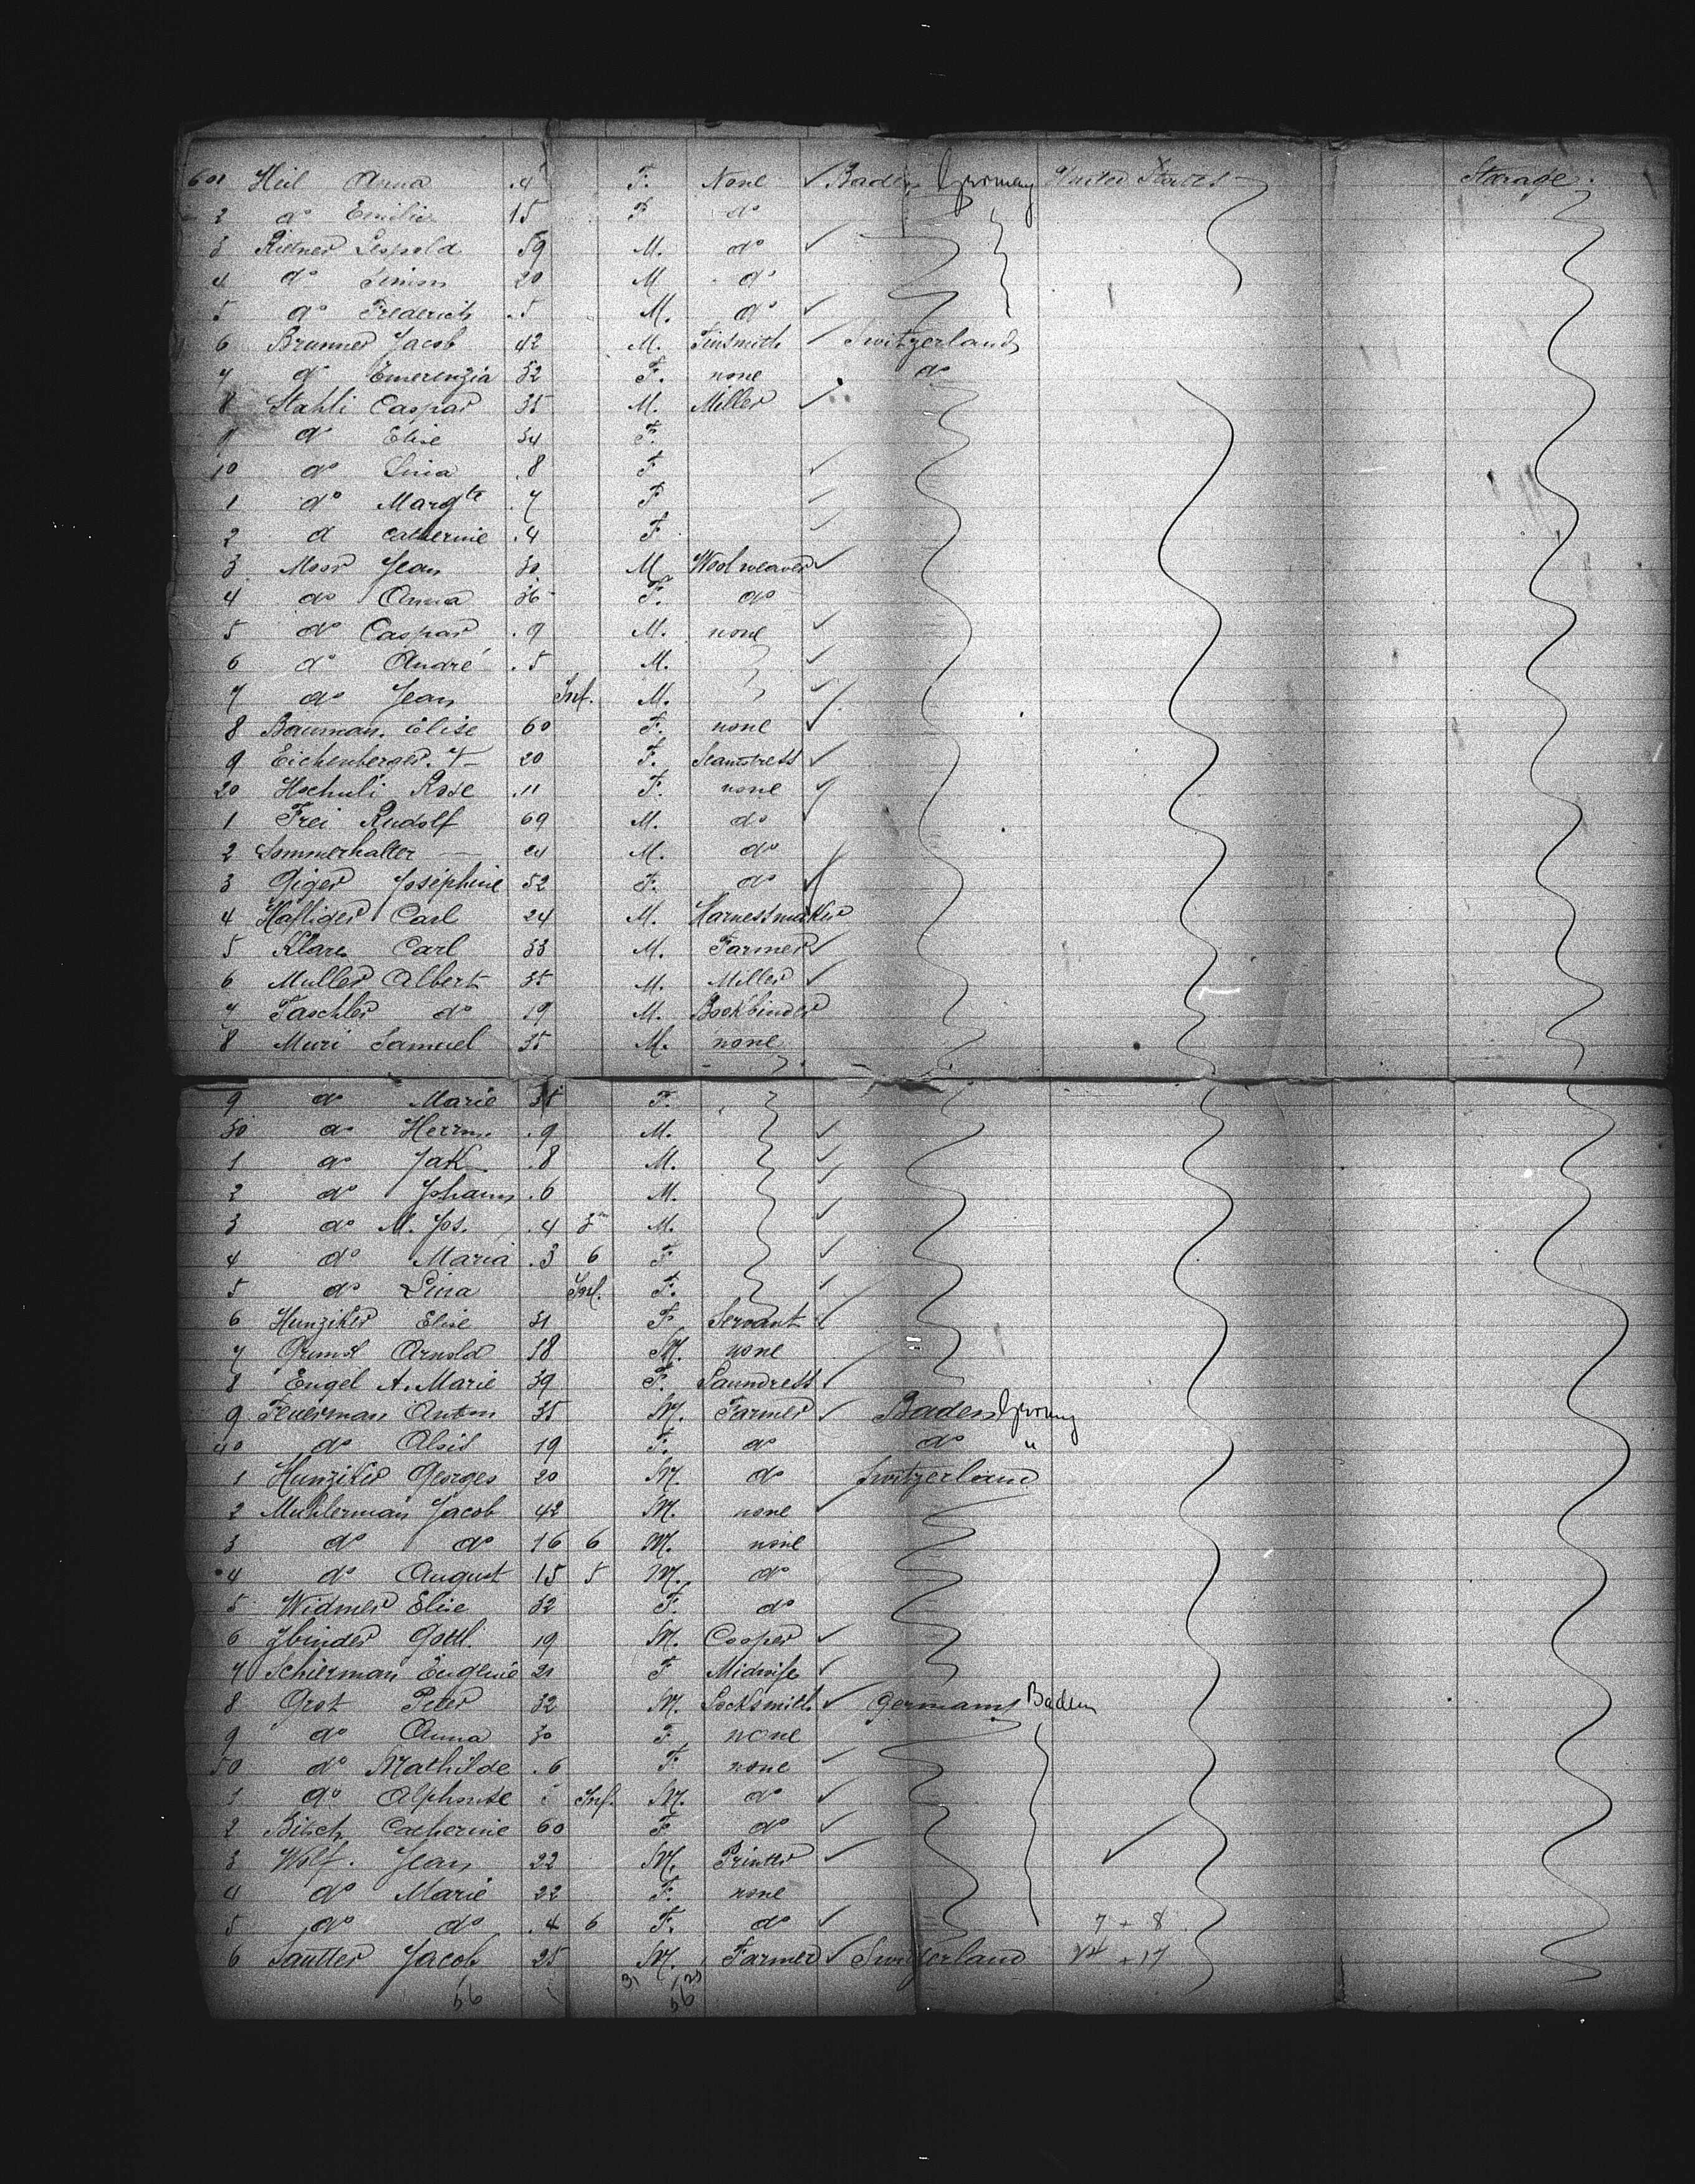 601 Heil Anna .4 F. None ✓ Baden Germany United States Starage.
2 do Emilie 15 F do
3 Rietner Leopold 59 M. do ✓
4 do Simon 20 M do
5 do Frederich .5 M. do ✓
6 Brunner Jacob 42 M. Tinsmith ✓ Switzerland
7 do Emerenzia 52 F. none do
8 Stahli Caspar 35 M. Miller ✓
9 do Elise 34 F.
10 do Lina .8 F ✓
1 do Margte .7 F ✓
2 d Catherine .4 F ✓
3 Moor Jean 30 M Wool weaver ✓
4 do Anna 36 F. do
5 do Caspar .9 M. none ✓
6 do André .5 M. ✓
7 do Jean Inf. M. ✓
8 Bauman. Elise 60 F. none ✓
9 Eichenberger. V- 20 F. Seamstress ✓
20 Hochuli Rose .11 F. none ✓
1 Frei Rudolf 69 M. do ✓
2 Sommerhalter — 24 M. do
3 Giger Joséphine 52 F. do ✓
4 Hafliger Carl 24 M. Harnessmaker
5 Klare Carl 33 M. Farmer ✓
6 Muller Albert 35 M. Miller ✓
7 Taschler do 19 M. Bookbinder
8 Muri Samuel 35 M. none
9 do Marie F.
30 do Herrm. .9 M. ✓
1 do Jak .8 M. ✓
2 do Johann .6 M. ✓
3 do M. Jos. .4 3m M. ✓
4 do Maria .3 6 F ✓
5 do Lina Inf. F. ✓
6 Hunziker Elise 31 F. Servant ✓
7 Grund Arnold 18 M. none
8 Engel A. Marie 39 F. Laundress ✓
9 Feuerman Anton 35 M. Farmer ✓ Baden Germany
40 do Alois 19 F. do do "
1 Hunziker Georges 20 M. do Switzerland
2 Muhlerman Jacob 42 M. none ✓
3 do do 16 6 M. none
4 do August 15 5 M. do
5 Widmer Elise 32 F. do
6 Jbinder Gottl. 19 M. Cooper ✓
7 Schierman Eugenie 21 F Midwife ✓
8 Grot Peter 32 M. Locksmith ✓ Germany Baden
9 do Anna 30 F none
50 do Mathilde .6 F none ✓
1 do Alphonse Inf. M. do ✓
2 Bitsch Catherine 60 F do ✓
3 Wolf. Jean 22 M. Printer ✓ ✓
4 do Marie 22 F. none
5 do do .4 6 F. do ✓ 7 + 8
6 Sautter Jacob 25 M. Farmer ✓ Switzerland + 17
56 31 25
56